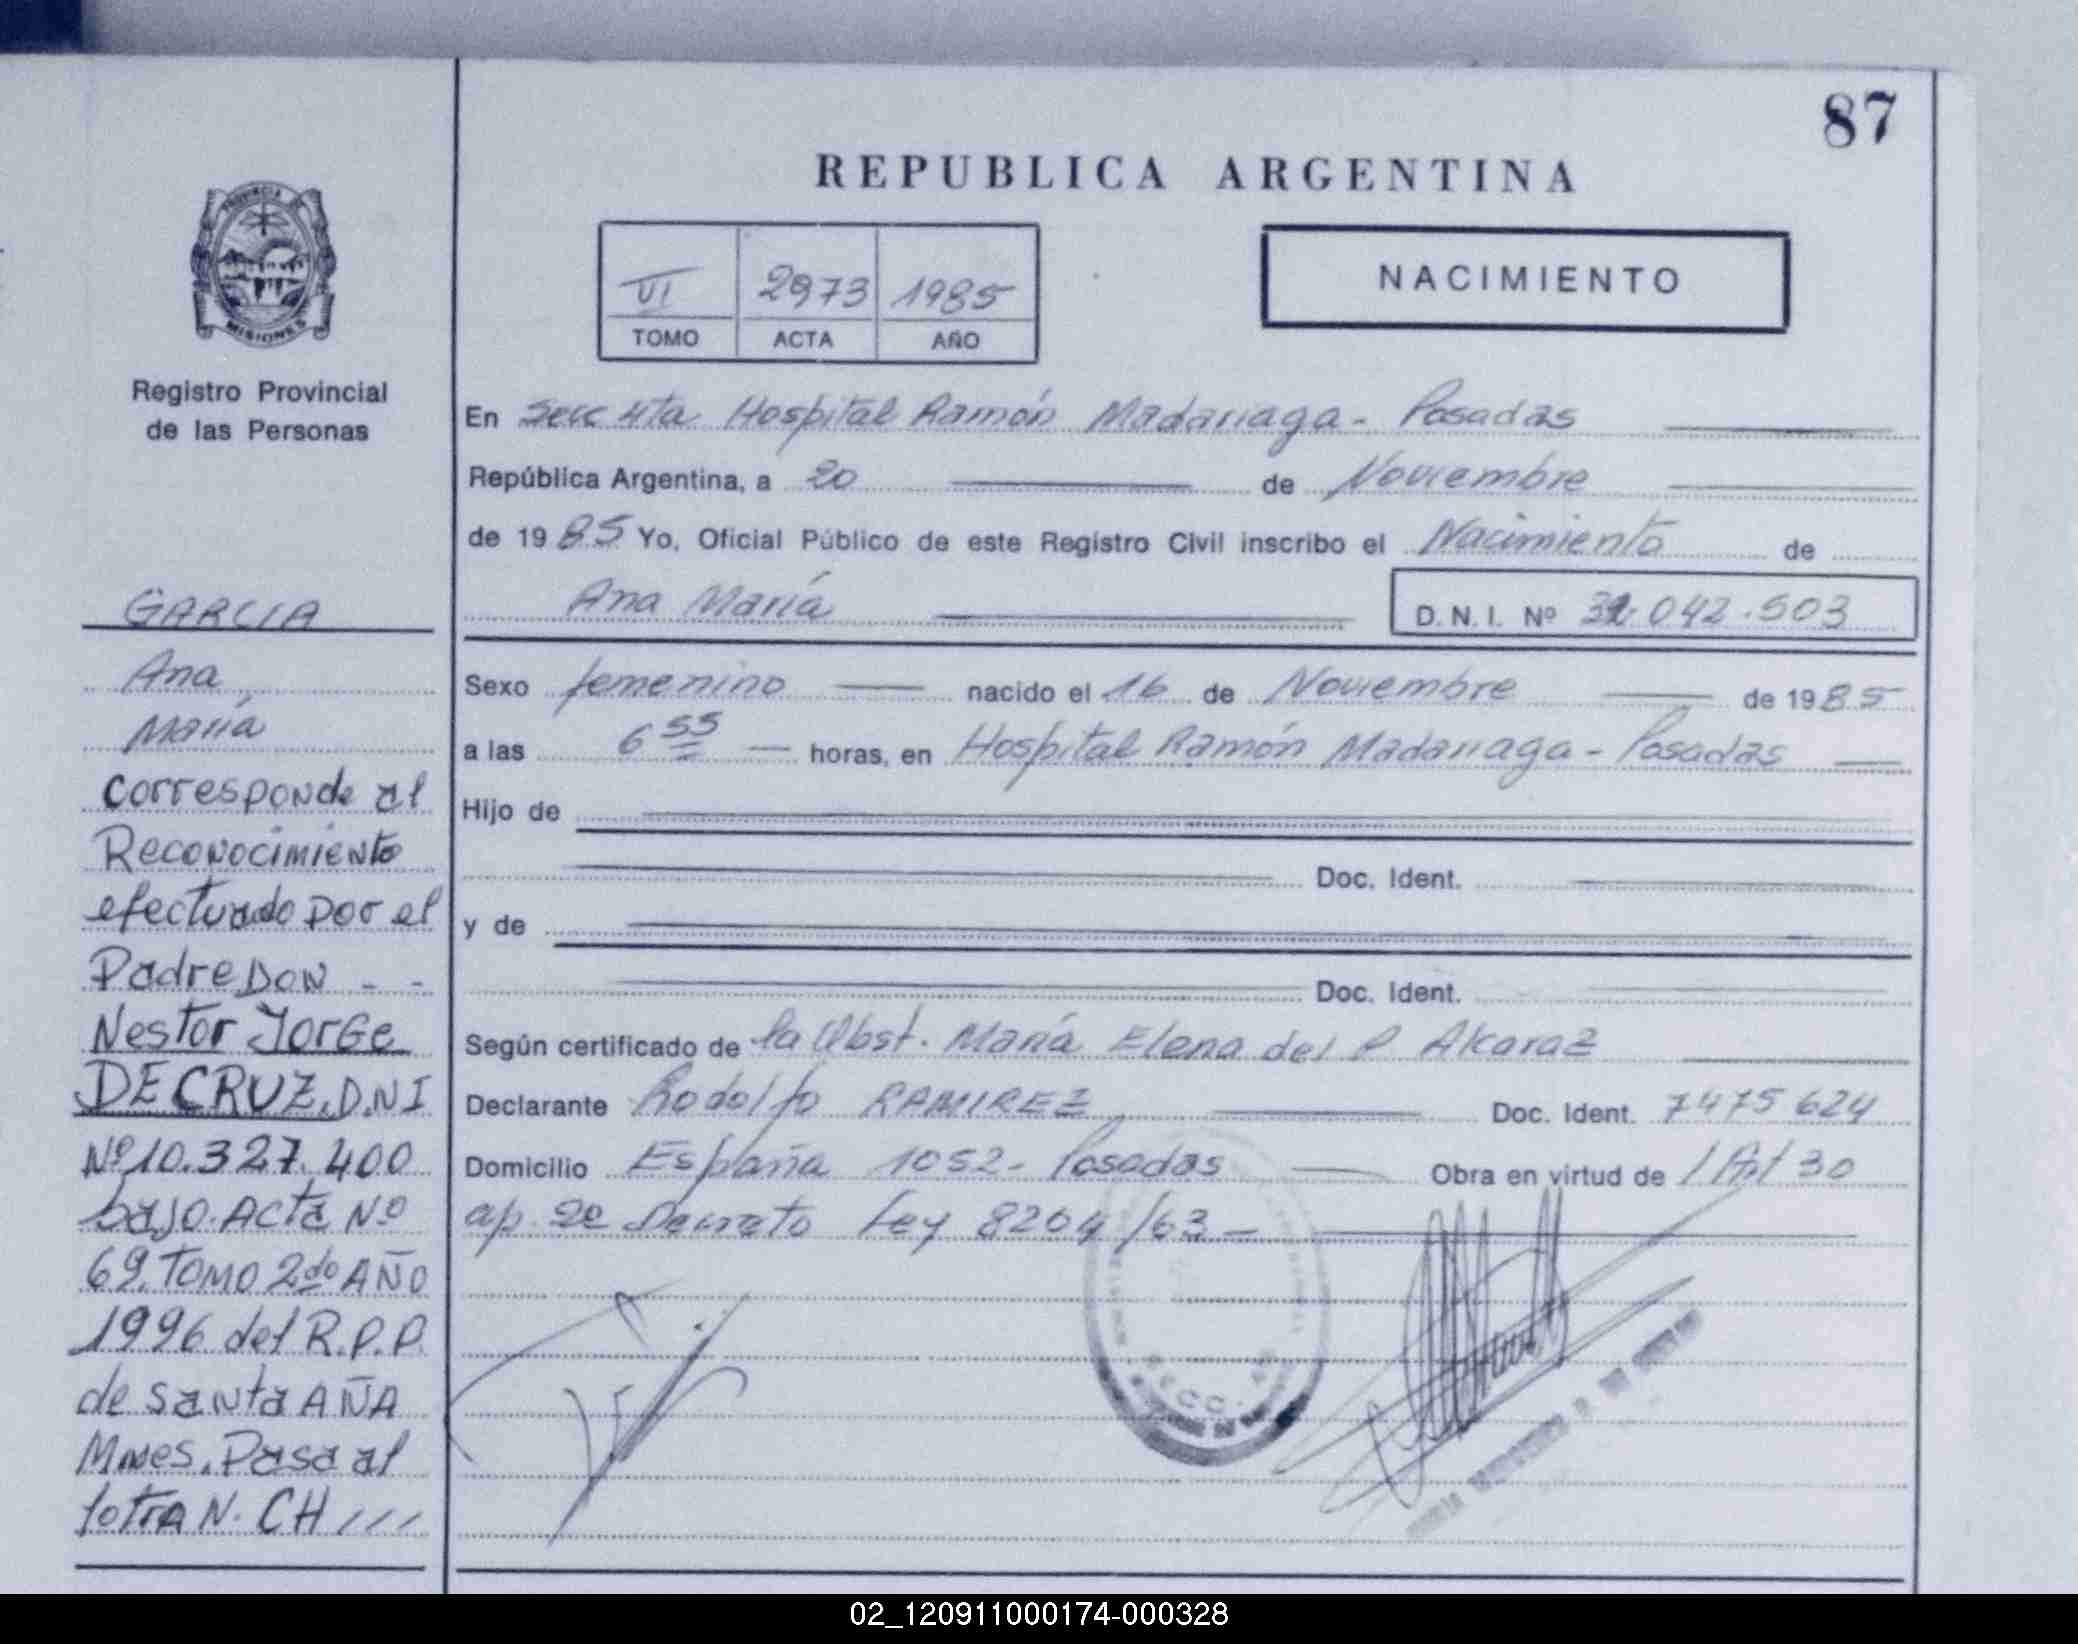 87
REPUBLICA ARGENTINA
PROVINCIA DE
MISIONES
Registro Provincial
de las Personas
VI 2973 1985
TOMO ACTA AÑO
NACIMIENTO
En Secc 4ta Hospital Ramón Madariaga - Posadas
República Argentina, a 20 de Noviembre
de 1985 Yo, Oficial Público de este Registro Civil inscribo el Nacimiento de
Ana María D.N.I. Nº 042.503
Sexo femenino nacido el 16 de Noviembre de 1985
a las 6 55 horas, en Hospital Ramón Madariaga - Posadas
Hijo de
Doc. Ident.
y de
Doc. Ident.
Según certificado de la Obst. María Elena del P Alcaraz
Declarante Rodolfo RAMIREZ Doc. Ident. 7475624
Domicilio España 1052 - Posadas Obra en virtud de /Art 30
ap. 2º Decreto Ley 8204/63 -
GARCIA
Ana
María
corresponde al
Reconocimiento
efectuado por el
Padre DON - -
Nestor Jorge
DE CRUZ. D.N I
Nº 10.327.400
bajo Acta Nº
69. TOMO 2do AÑO
1996 del R.P.P.
de Santa AÑA
Mnes. Pasa al
fotra N. CH ///
02_120911000174-000328